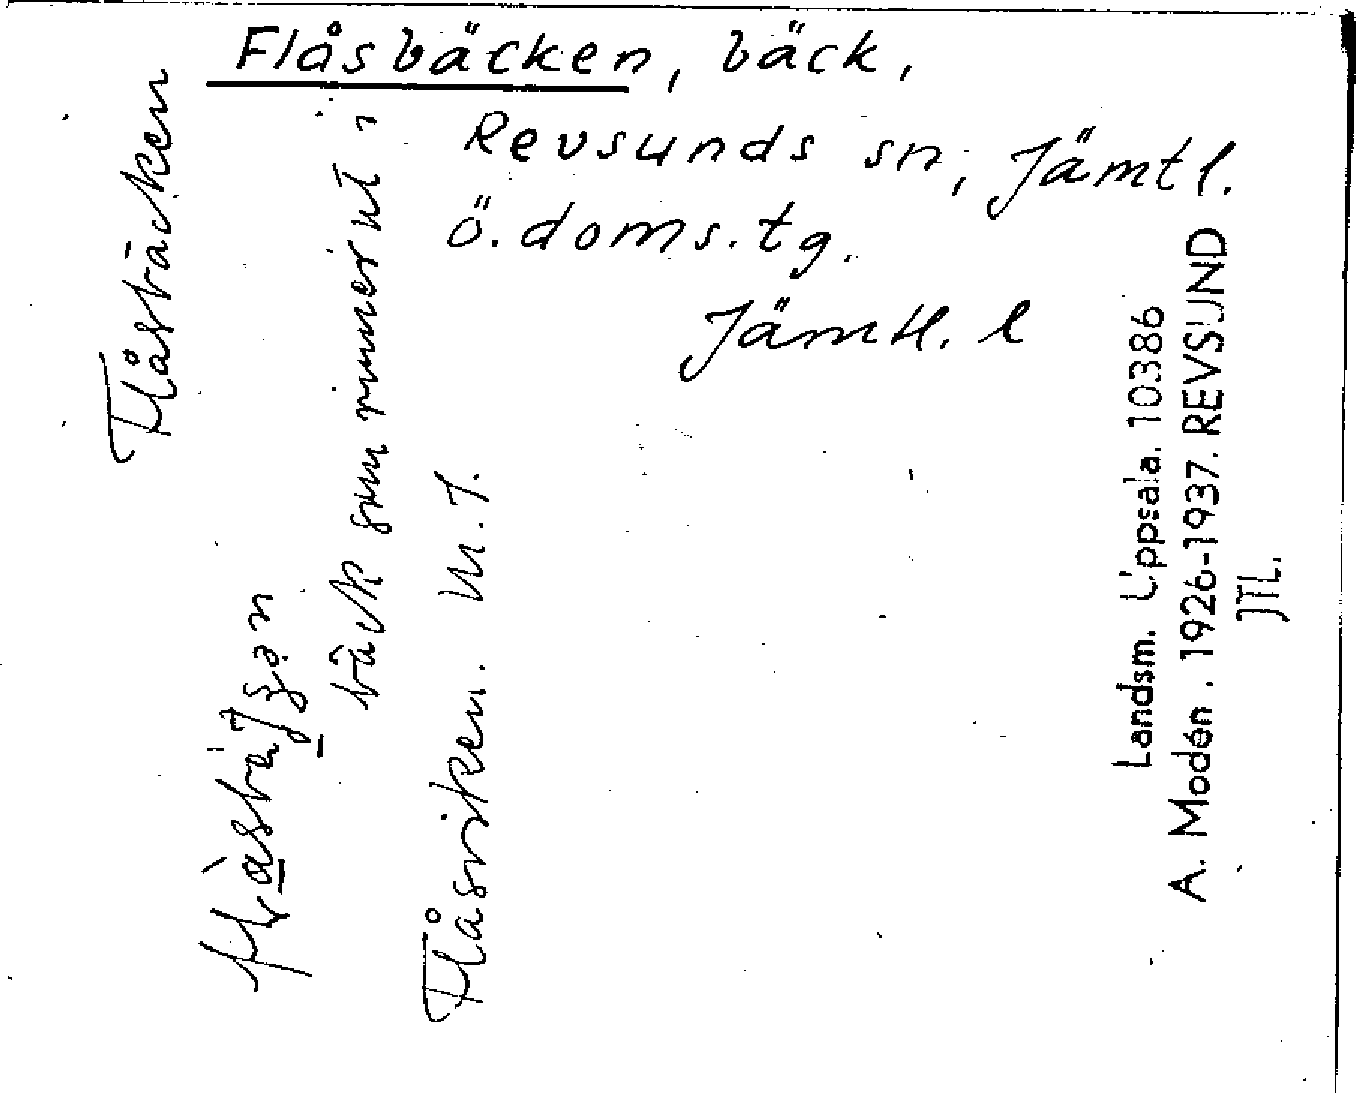 Flåsbäcken, bäck,
Revsunds sn, Jämtl.
ö. doms. tg.
Jämtl. l
Flåsbäcken
bäck som runnit ut i
Flåsviken. M. J.
Landsm. Uppsala. 10386
A. Modén. 1926-1937. REVSUND
JTL.